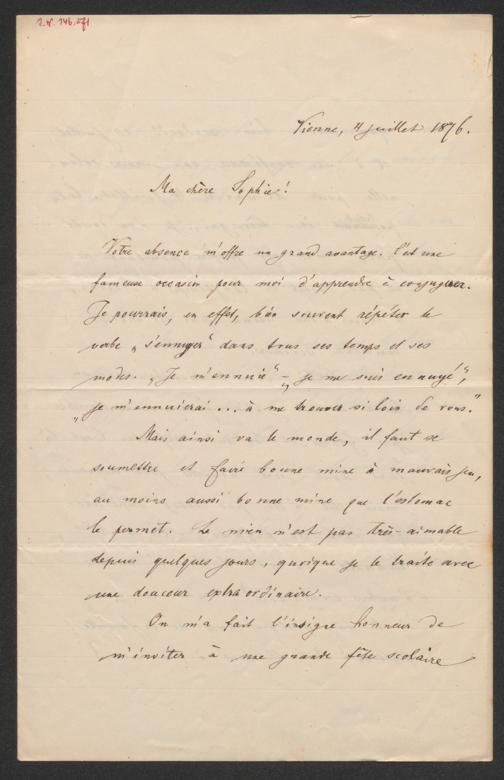 Vienne, 4 juillet 1876.
Ma chère Sophie!
Votre absence m'offre un grand avantage. C'est une
fameuse occasion pour moi d'apprendre à conjuguer.
Je pourrais, en effet, bien souvent répéter le
verbe „s'ennuyer" dans tous ses temps et ses
modes. „Je m'ennuie" – „je me suis ennuyé",
„je m'ennuierai ... à me trouver si loin de vous."
Mais ainsi va le monde, il faut se
soumettre et faire bonne mine à mauvais jeu,
au moins aussi bonne mine que l'estomac
le permet. Le mien n'est pas très-aimable
depuis quelques jours, quoique je le traite avec
une douceur extraordinaire.
On m'a fait l'insigne honneur de
m'inviter à une grande fête scolaire